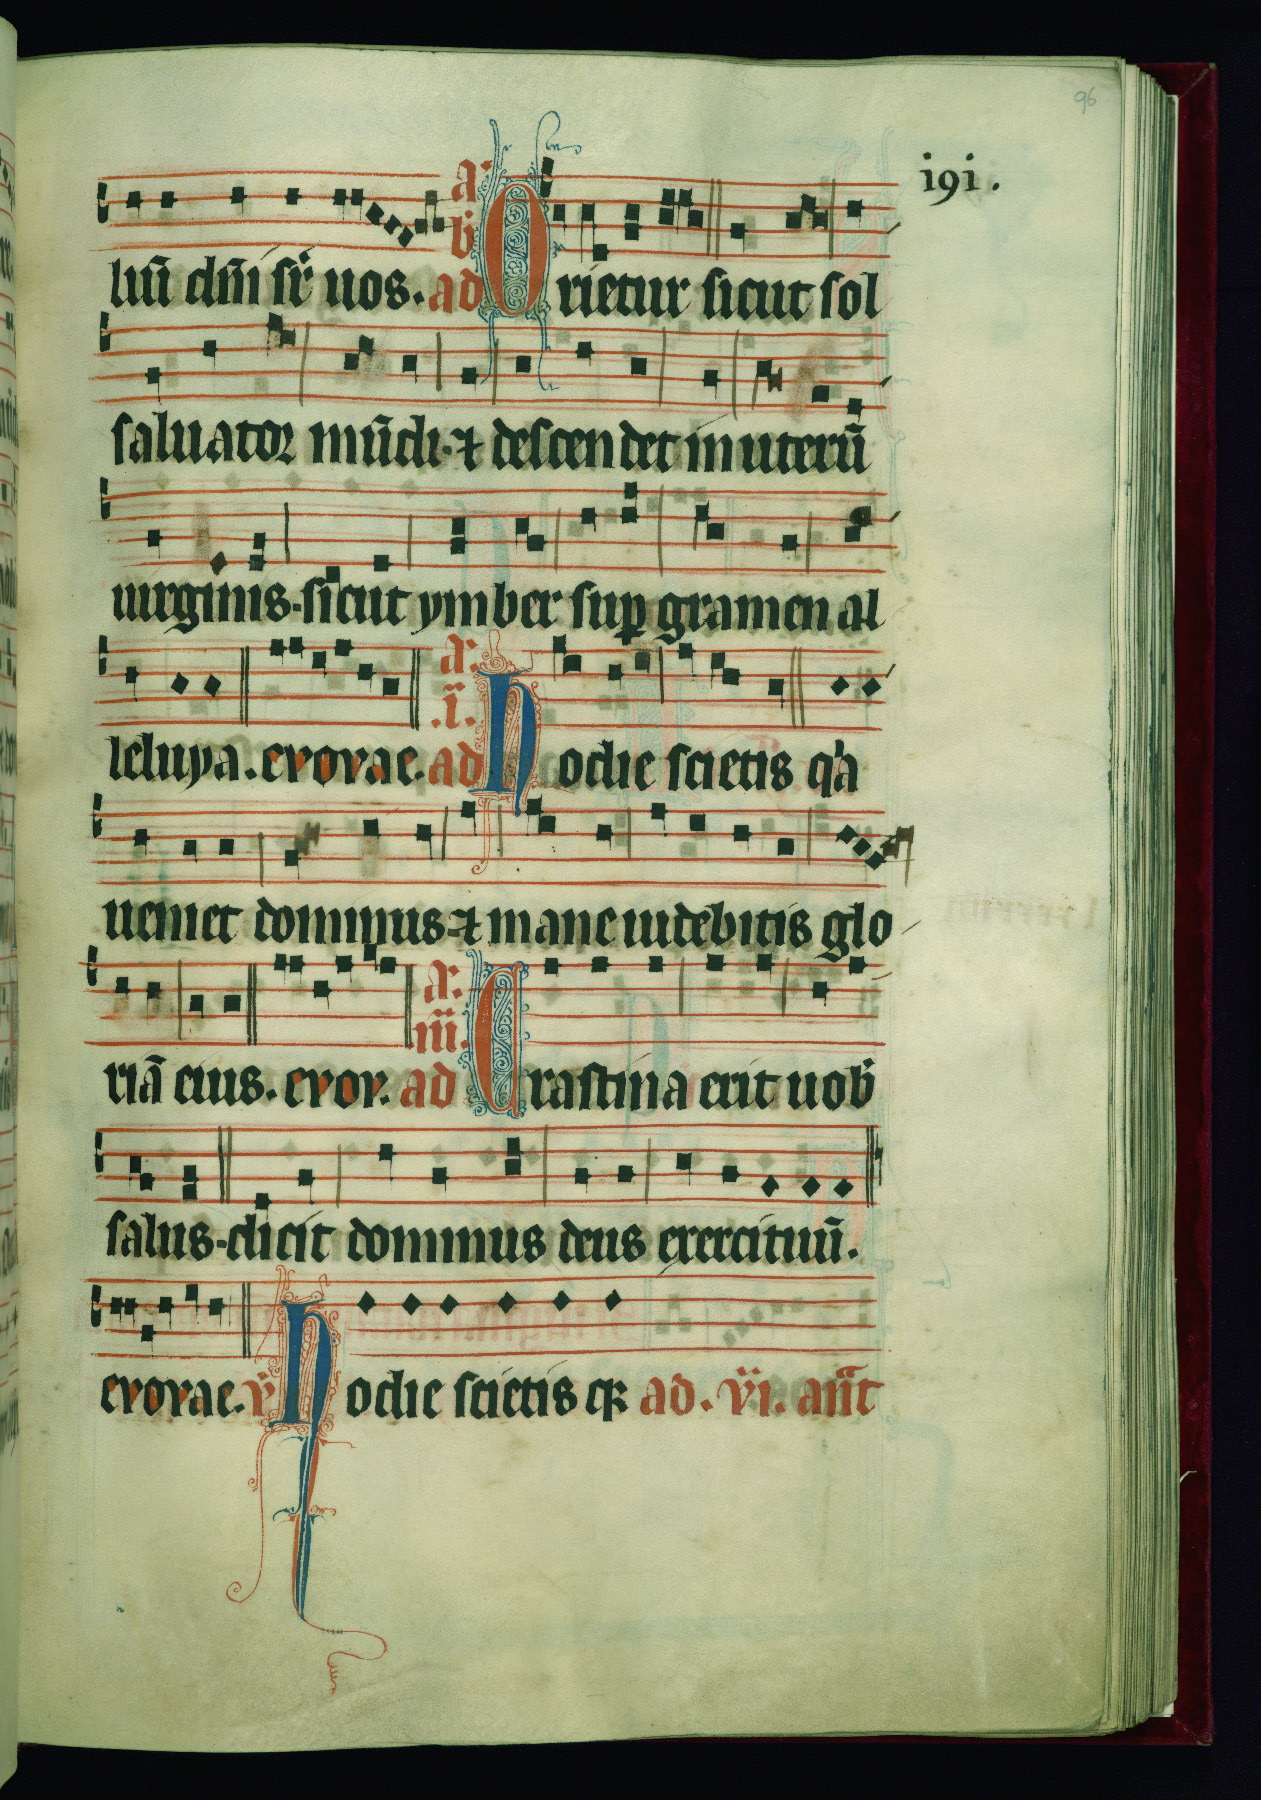 96
191.
a.
v
liū dñi sr̄ uos. ad Orietur sicut sol
saluator mūdi. ⁊ descendet in uterū
uirginis. sicut ymber sup gramen al
a.
.i.
leluya. evovae. ad hodie scietis q̄a
ueniet dominus ⁊ mane uidebitis glo
a.
iii.
riā eius. evov. ad Crastina erit uob̄
salus. dicit dominus deus exercituū.
evovae. v̄ hodie scietis qꝛ ad. vi. añt